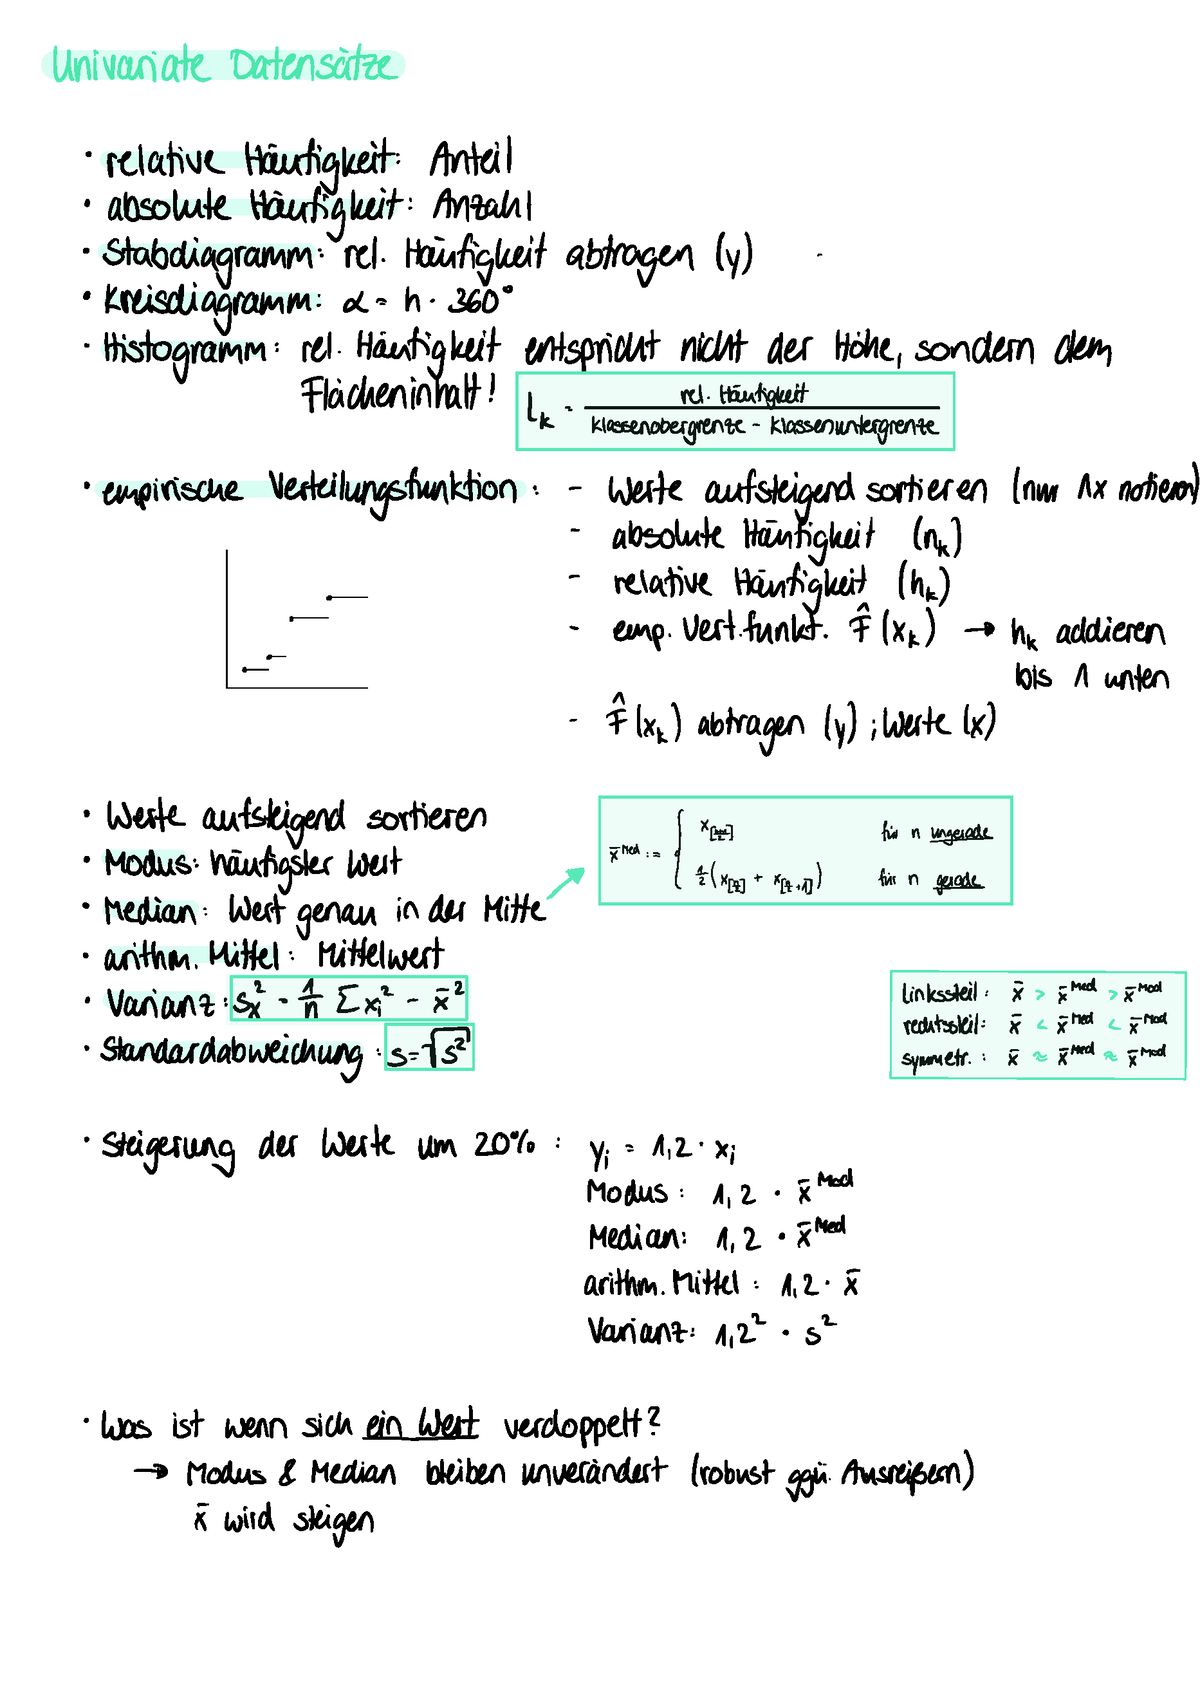 Univariate Datensätze
• relative Häufigkeit: Anteil
• absolute Häufigkeit: Anzahl
• Stabdiagramm: rel. Häufigkeit abtragen (y)
• Kreisdiagramm: α = h · 360°
• Histogramm: rel. Häufigkeit entspricht nicht der Höhe, sondern dem
Flächeninhalt!
L_k = rel. Häufigkeit / (Klassenobergrenze - Klassenuntergrenze)
• empirische Verteilungsfunktion: - Werte aufsteigend sortieren (nur 1x notieren)
- absolute Häufigkeit (n_k)
- relative Häufigkeit (h_k)
- emp. Vert.funkt. F̂(x_k) → h_k addieren
bis 1 unten
- F̂(x_k) abtragen (y); Werte (x)
• Werte aufsteigend sortieren
• Modus: häufigster Wert
• Median: Wert genau in der Mitte
x̄^Med := { x_[(n+1)/2] für n ungerade
1/2 (x_[n/2] + x_[n/2+1]) für n gerade
• arithm. Mittel: Mittelwert
• Varianz: s_x² = 1/n Σ x_i² - x̄²
• Standardabweichung: s = √s²
linkssteil: x̄ > x̄^Med > x̄^Mod
rechtssteil: x̄ < x̄^Med < x̄^Mod
symmetr.: x̄ ≈ x̄^Med ≈ x̄^Mod
• Steigerung der Werte um 20%: y_i = 1,2 · x_i
Modus: 1,2 · x̄^Mod
Median: 1,2 · x̄^Med
arithm. Mittel: 1,2 · x̄
Varianz: 1,2² · s²
• Was ist wenn sich ein Wert verdoppelt?
→ Modus & Median bleiben unverändert (robust ggü. Ausreißern)
x̄ wird steigen